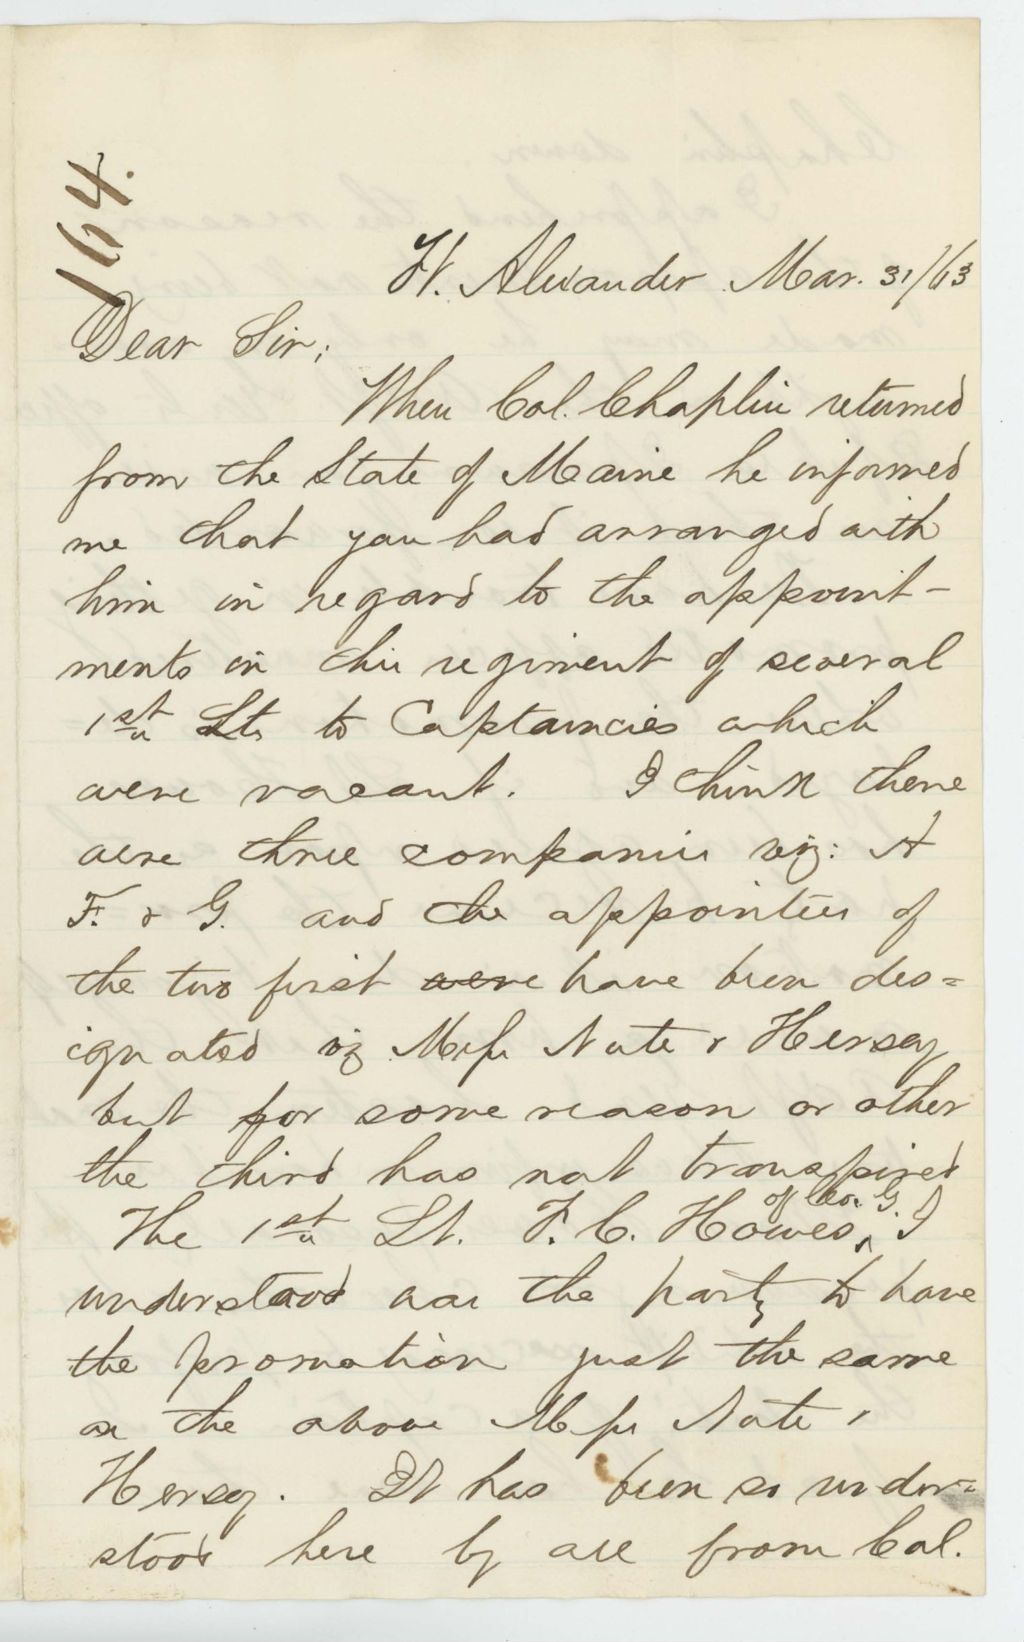 164.
Ft. Alexander Mar. 31/63
Dear Sir;
When Col. Chaplin returned
from the State of Maine he informed
me that you had arranged with
him in regard to the appoint-
ments in this regiment of several
1st Lts to Captaincies which
were vacant. I think there
were three companies viz: A
F. & G. and the appointees of
the two first were have been des=
ignated viz Messrs Nute & Hersey
but for some reason or other
the third has not transpired
The 1st Lt. F. C. Howes of Co. G. I
understood was the party to have
the promotion just the same
as the above Messrs Nute &
Hersey. It has been so under=
stood here by all from Col.